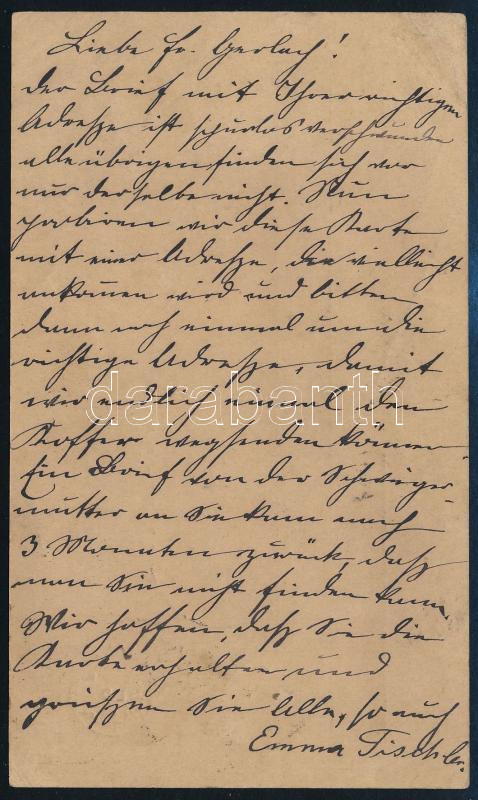 Liebe Fr. Gerlach!
der Brief mit Ihrer richtigen
Adresse ist spurlos verschwunden
alle übrigen finden sich vor
nur derselbe nicht. Nun
probiren wir diese Karte
mit einer Adresse, die vielleicht
ankommen wird und bitten
dann noch einmal um die
richtige Adresse, damit
wir endlich einmal den
darabanth
Koffer wegsenden können
Ein Brief von der Schwieger-
mutter an Sie kam nach
3 Monaten zurück, daß
man Sie nicht finden kann.
Wir hoffen, daß Sie die
Karte erhalten und
grüßen Sie Alle, so auch
Emma Tischler.